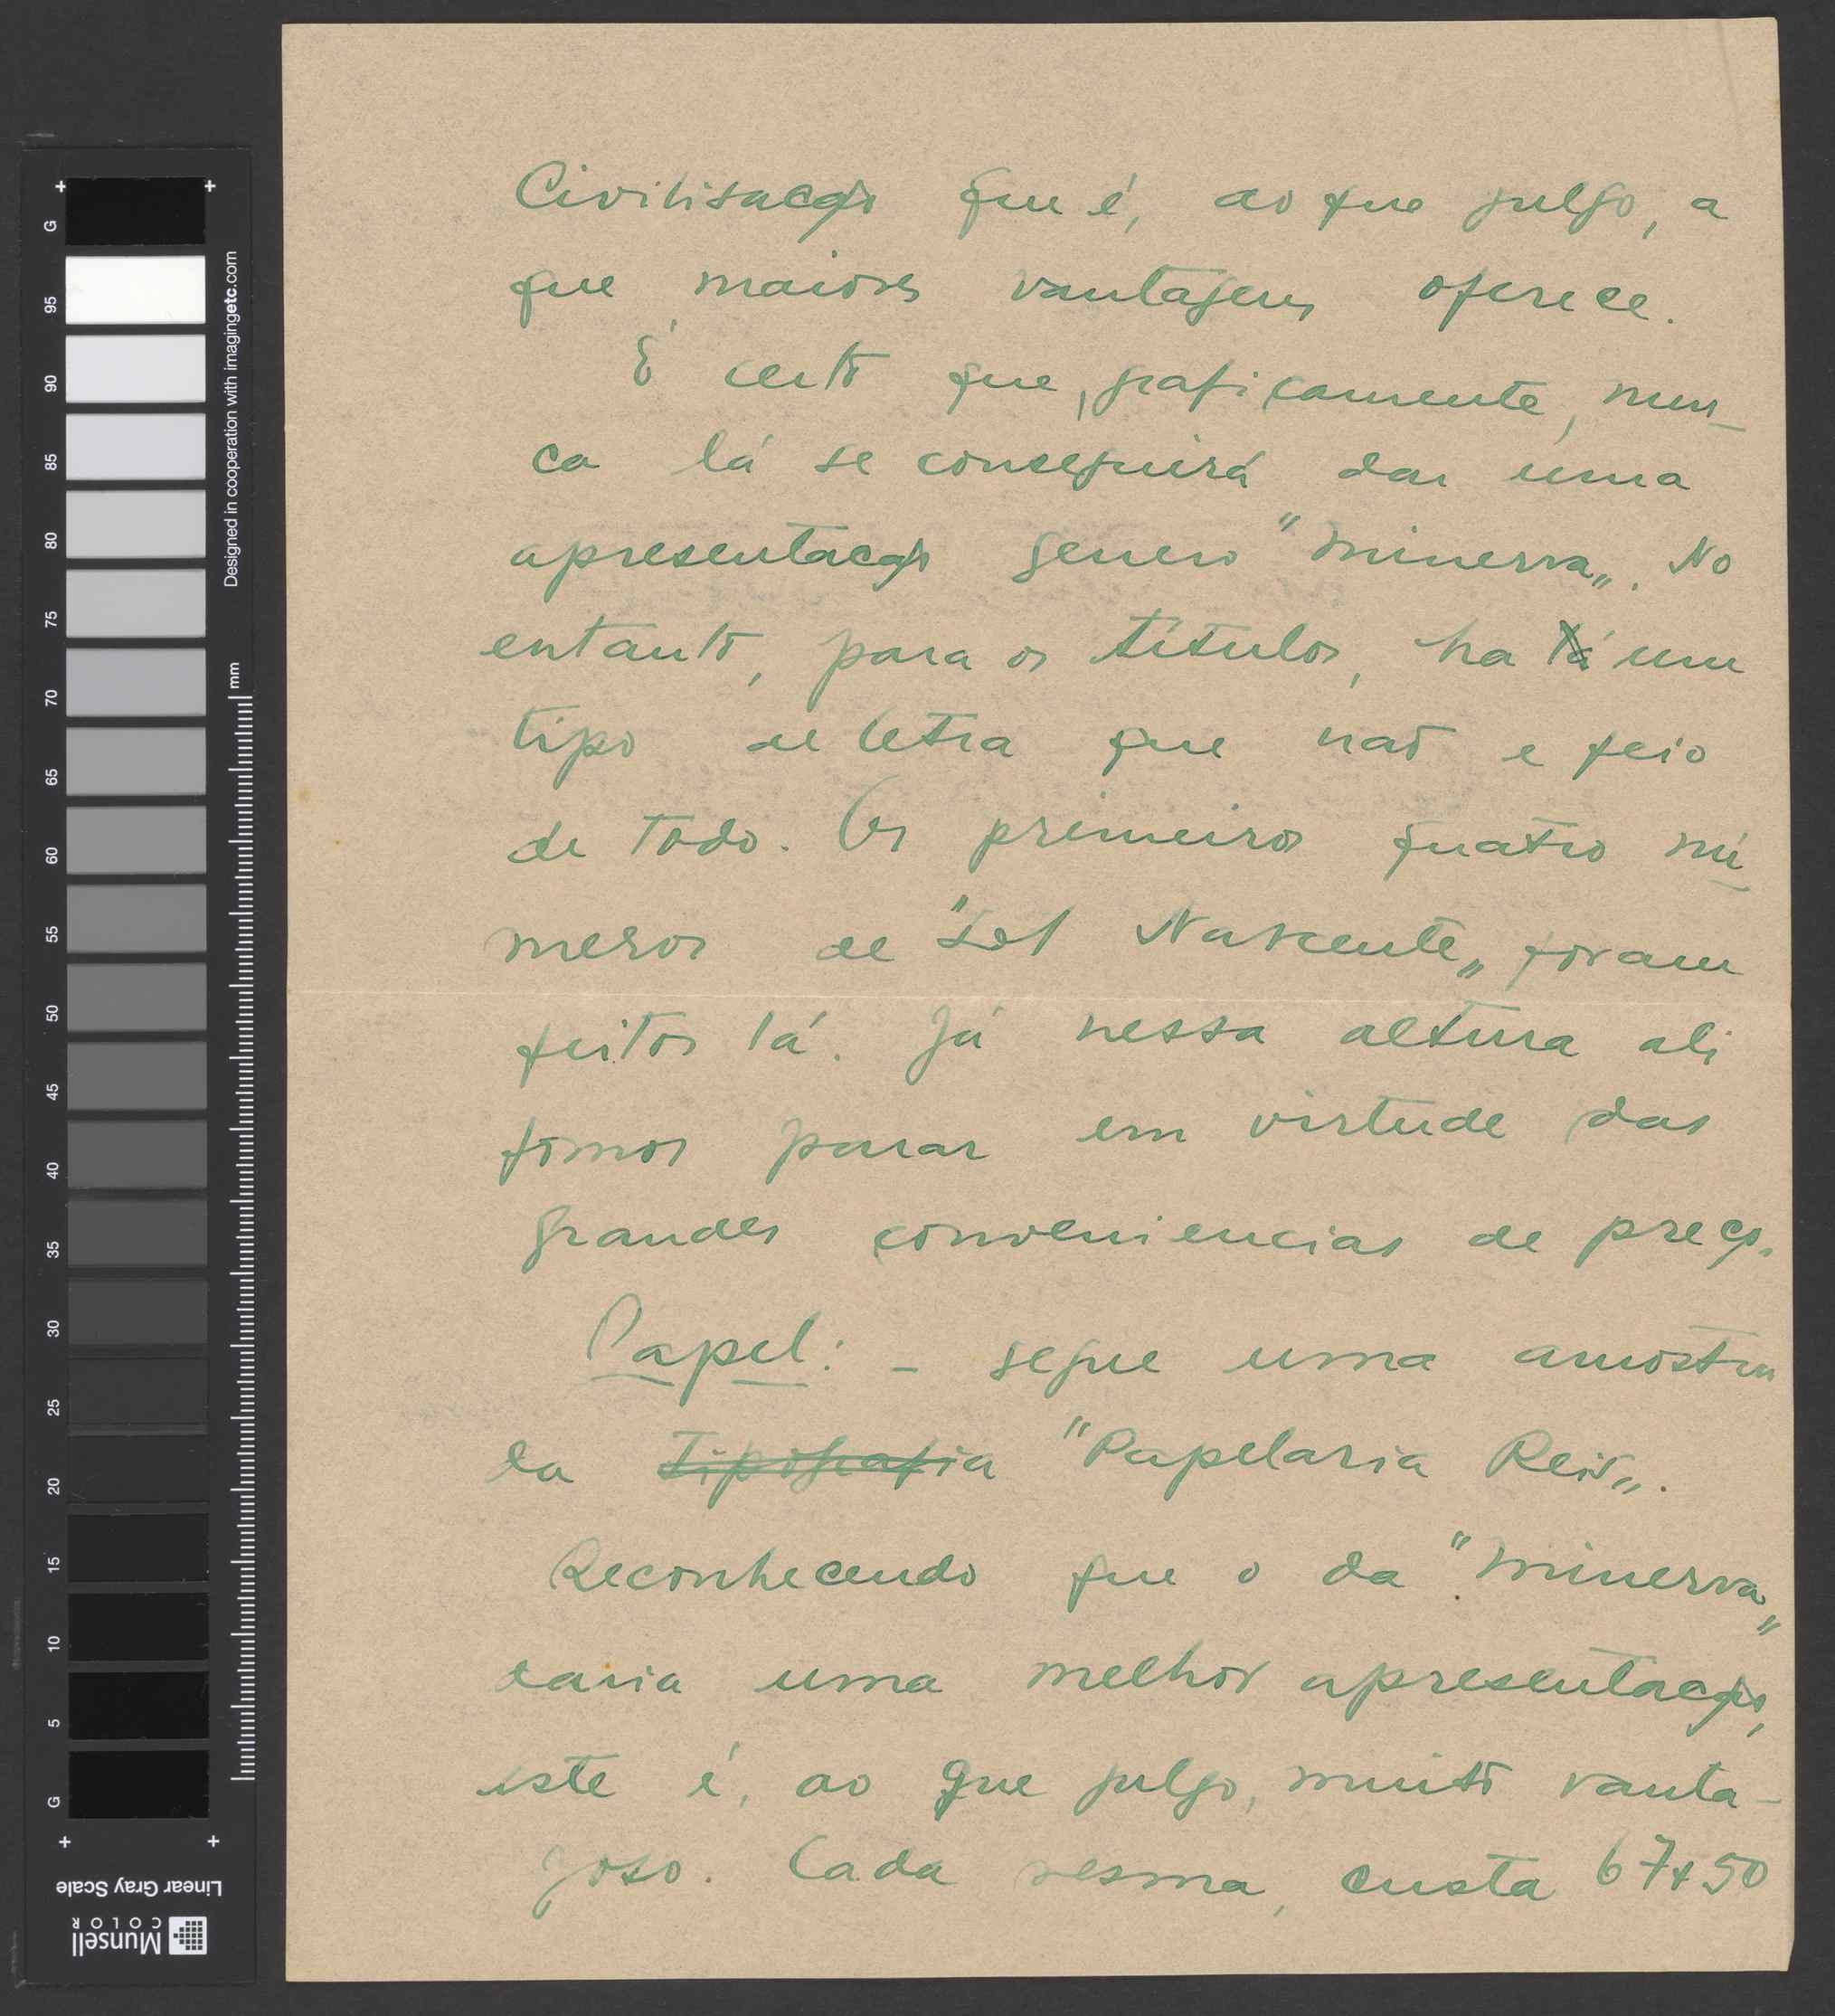 Civilisação que é, ao que julgo, a
que maiores vantagens oferece.
É certo que, graficamente, nun-
ca lá se conseguirá dar uma
apresentação genero "Minerva„. No
entanto, para os títulos, ha lá um
tipo de letra que não e feio
de todo. Os primeiros quatro nú-
meros de "Sol Nascente„ foram
feitos lá. Já nessa altura ali
fômos parar em virtude das
grandes conveniencias de preço.
Papel: – segue uma amostra
da Tipografia "Papelaria Reis„.
Reconhecendo que o da "Minerva„
daria uma melhor apresentação,
este é, ao que julgo, muito vanta-
joso. Cada resma, custa 67$50
G
95
90
85
80
75
70
65
60
55
50
45
40
35
30
25
20
15
10
5
G
mm
Designed in cooperation with imagingetc.com
Linear Gray Scale
Munsell
COLOR